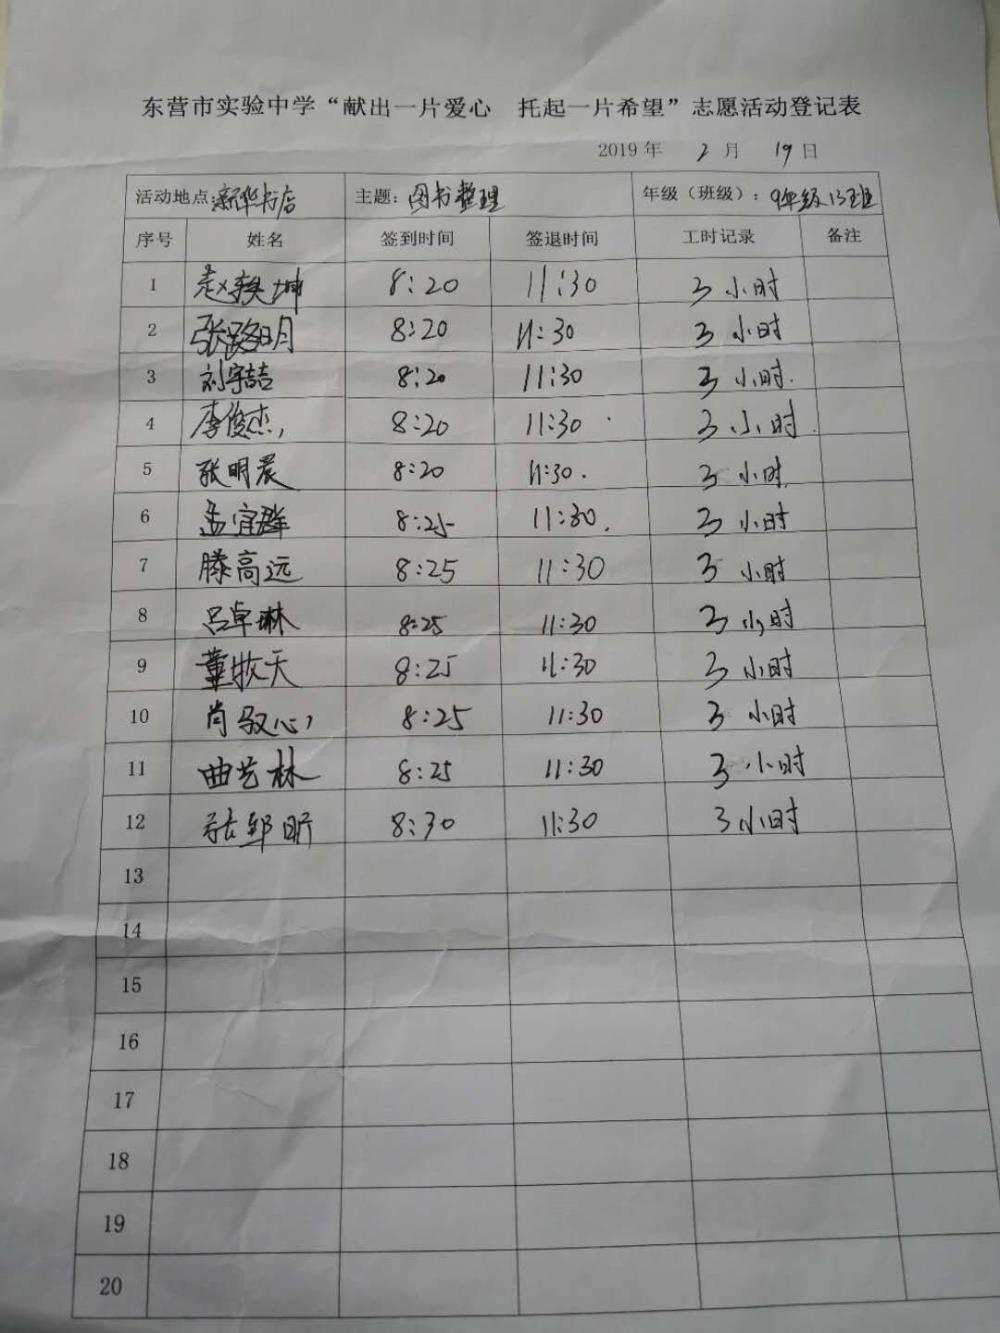 东营市实验中学“献出一片爱心 托起一片希望”志愿活动登记表
2019年 2月 19日
活动地点:新华书店 主题:图书整理 年级（班级）:9年级13班
序号 姓名 签到时间 签退时间 工时记录 备注
1 赵奕坤 8:20 11:30 3小时
2 张路明 8:20 11:30 3小时
3 刘宇喆 8:20 11:30 3小时.
4 李俊杰, 8:20 11:30 3小时.
5 张明宸 8:20 11:30. 3小时.
6 孟宜群 8:25 11:30. 3小时
7 滕高远 8:25 11:30 3小时
8 吕卓琳 8:25 11:30 3小时
9 董牧天 8:25 11:30 3小时
10 肖驭心 8:25 11:30 3小时
11 曲艺林 8:25 11:30 3小时
12 张邹昕 8:30 11:30 3小时
13
14
15
16
17
18
19
20